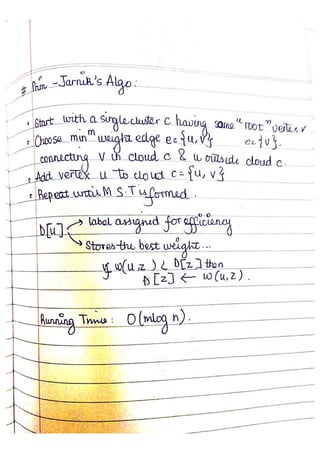 # Prim - Jarnik's Algo:
• Start with a single cluster C having some "root" vertex V
• Choose min^m weight edge e={u,v} c={v}.
connecting V in cloud C & u outside cloud c.
• Add vertex U to cloud C={u, v}
• Repeat until M S.T is formed.
D[u] → label assigned for efficiency
↘ Stores the best weight...
if w(u,z) < D[z] then
D[z] ← w(u,z).
Running Time: O(mlog n).